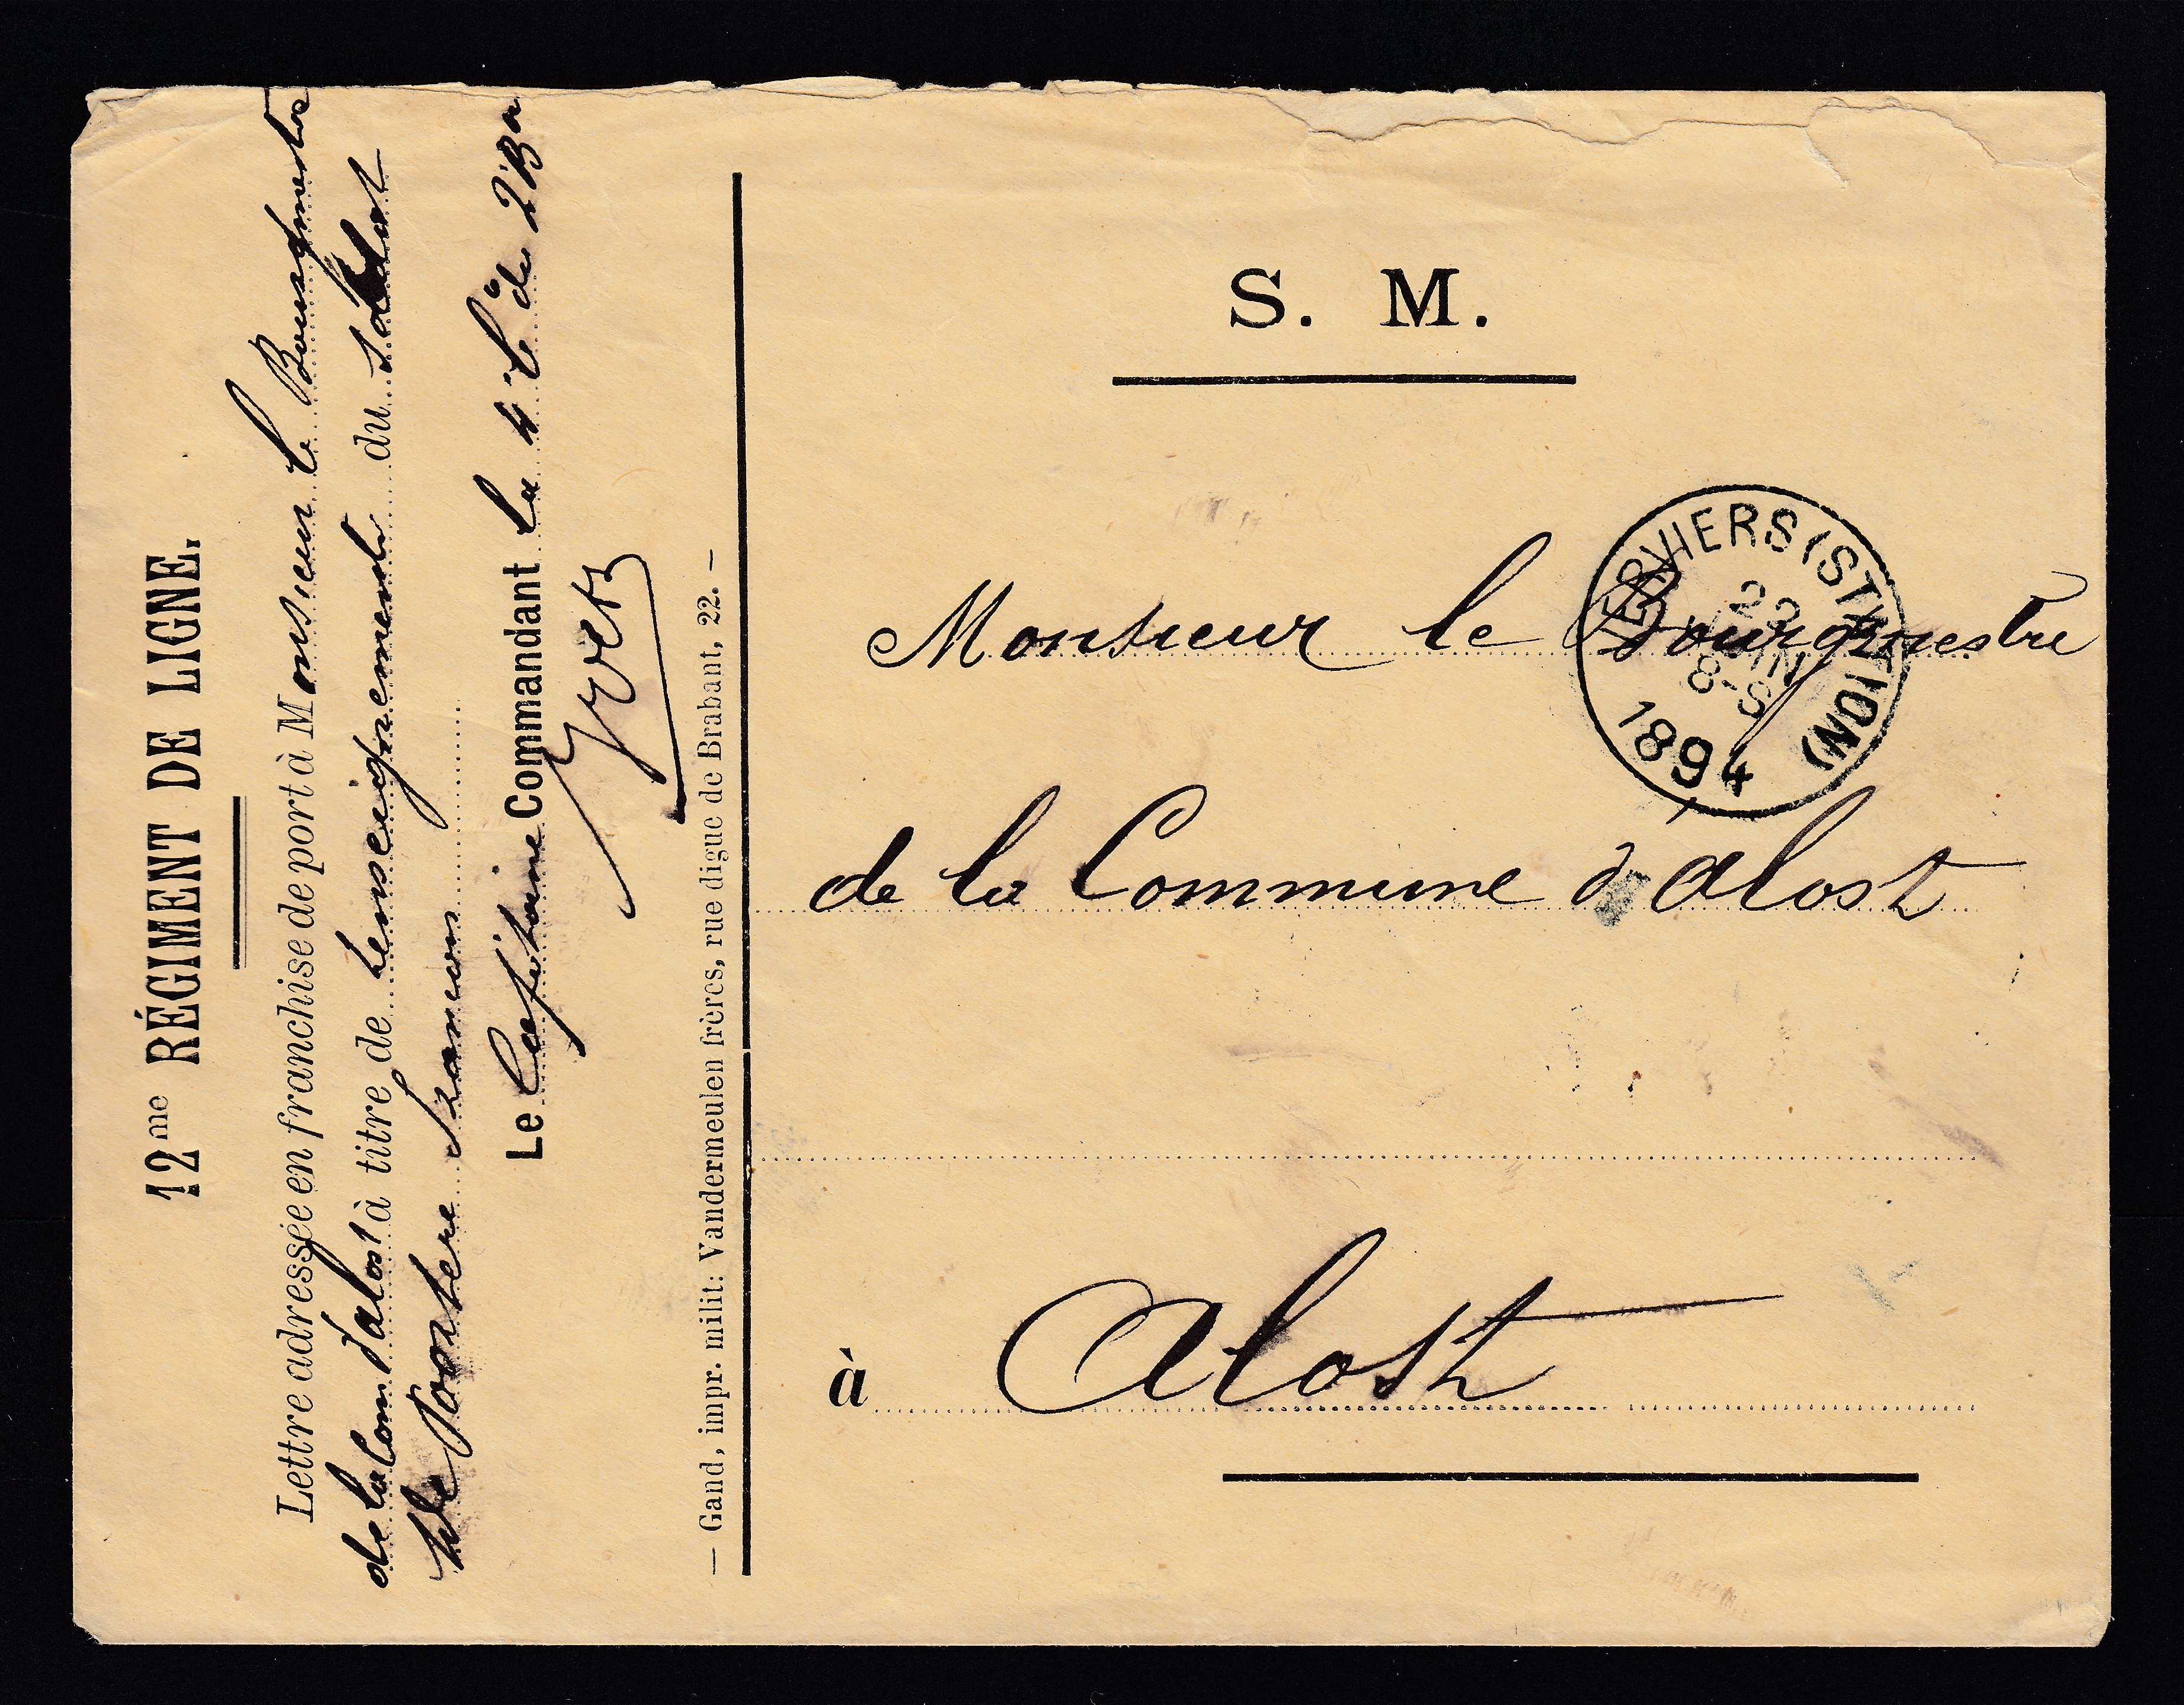 12me RÉGIMENT DE LIGNE.
Lettre adressée en franchise de port à Monsieur le Bourgmestre
de la Com d'alost à titre de renseignements du soldat
De Poortere François
Le Capitaine Commandant la 4 Cie du 2 Bon
— Gand, impr. milit: Vandermeulen frères, rue digue de Brabant, 22. —
S. M.
VERVIERS (STATION)
23
JUIN
8-S
1894
Monsieur le Bourgmestre
de la Commune d'Alost
à Alost